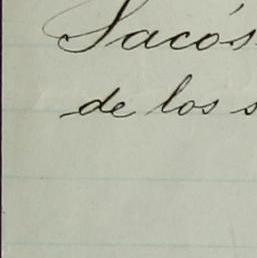 Sacós
de los s